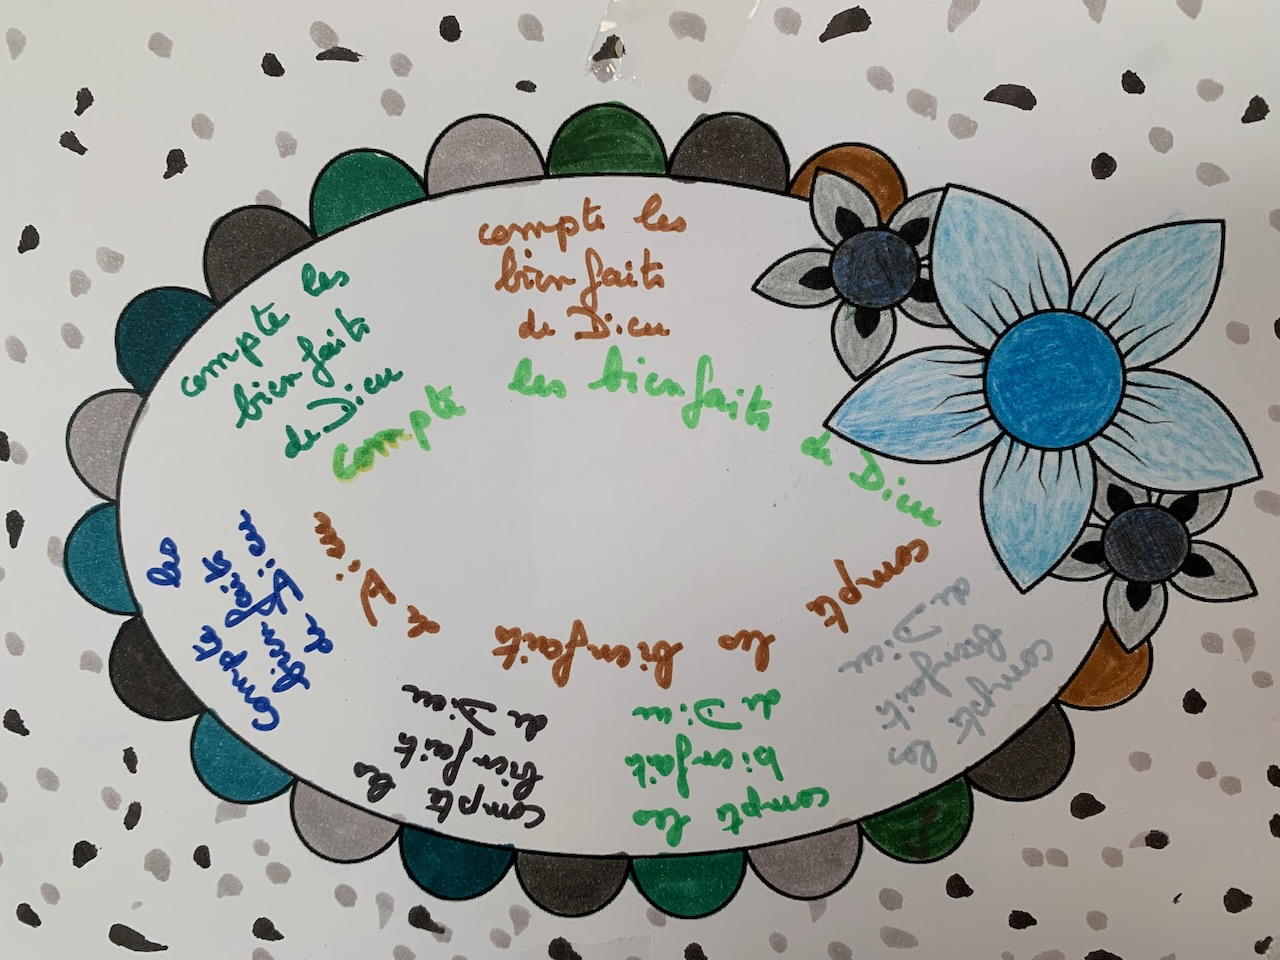 compte les
bienfaits
de Dieu
compte les
bienfaits
de Dieu
compte les bienfaits de Dieu
compte les
bienfaits
de Dieu
compte les bienfaits de Dieu
compte les
bienfait
de Dieu
compte les
bienfaits
de Dieu
compte les
bienfait
de Dieu